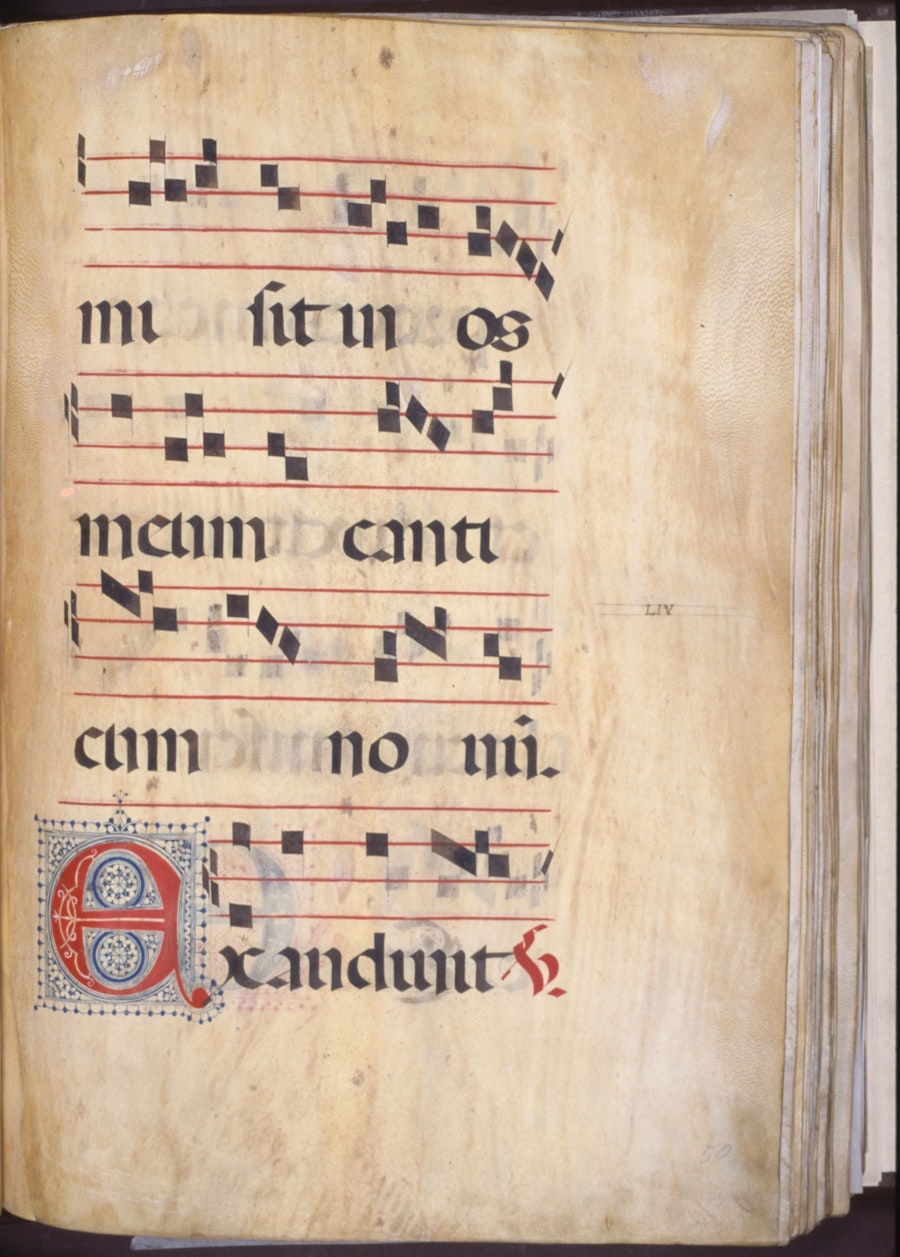 mi sit in os
meum canti
LIV
cum no uū.
Exaudiuit V.
50